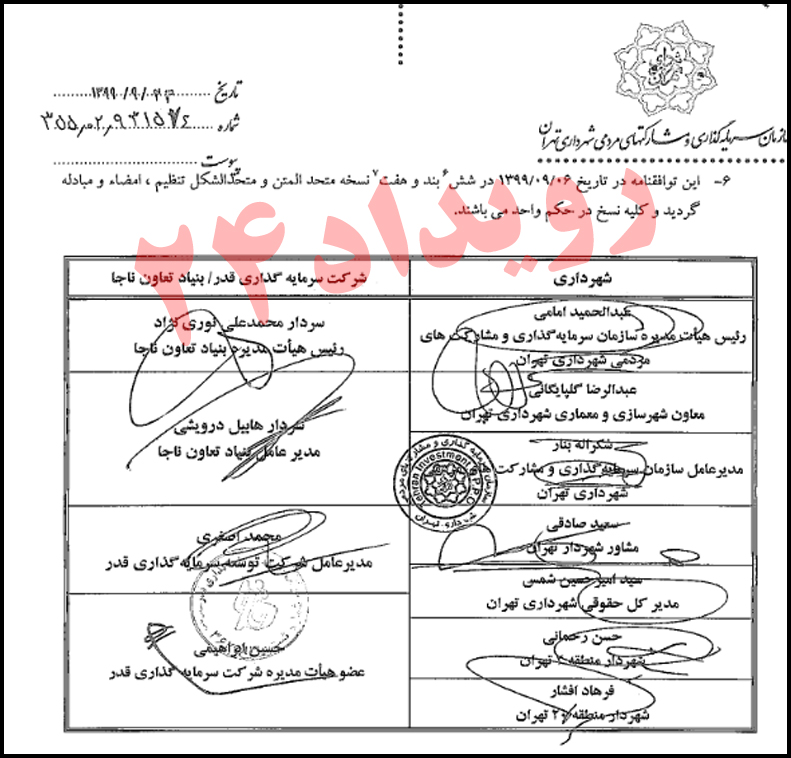 سازمان سرمایه گذاری و مشارکتهای مردمی شهرداری تهران
تاریخ
شماره
پیوست
۶- این توافقنامه در تاریخ ۱۳۹۹/۰۹/۰۶ در شش۶ بند و هفت۷ نسخه متحد المتن و متحدالشکل تنظیم ، امضاء و مبادله
گردید و کلیه نسخ در حکم واحد می باشند.
رویداد۲۴
شهرداری
عبدالحمید امامی
رئیس هیأت مدیره سازمان سرمایه گذاری و مشارکت های
مردمی شهرداری تهران
عبدالرضا گلپایگانی
معاون شهرسازی و معماری شهرداری تهران
شکراله بنار
مدیرعامل سازمان سرمایه گذاری و مشارکت های
شهرداری تهران
سعید صادقی
مشاور شهردار تهران
سید امیرحسین شمس
مدیر کل حقوقی شهرداری تهران
حسن رحمانی
شهردار منطقه تهران
فرهاد افشار
شهردار منطقه ۲۲ تهران
شرکت سرمایه گذاری قدر/ بنیاد تعاون ناجا
سردار محمدعلی نوری نژاد
رئیس هیأت مدیره بنیاد تعاون ناجا
سردار هابیل درویشی
مدیر عامل بنیاد تعاون ناجا
محمد اصغری
مدیرعامل شرکت توسعه سرمایه گذاری قدر
حسین ابراهیمی
عضو هیأت مدیره شرکت سرمایه گذاری قدر
Tehran Investment & PPPO